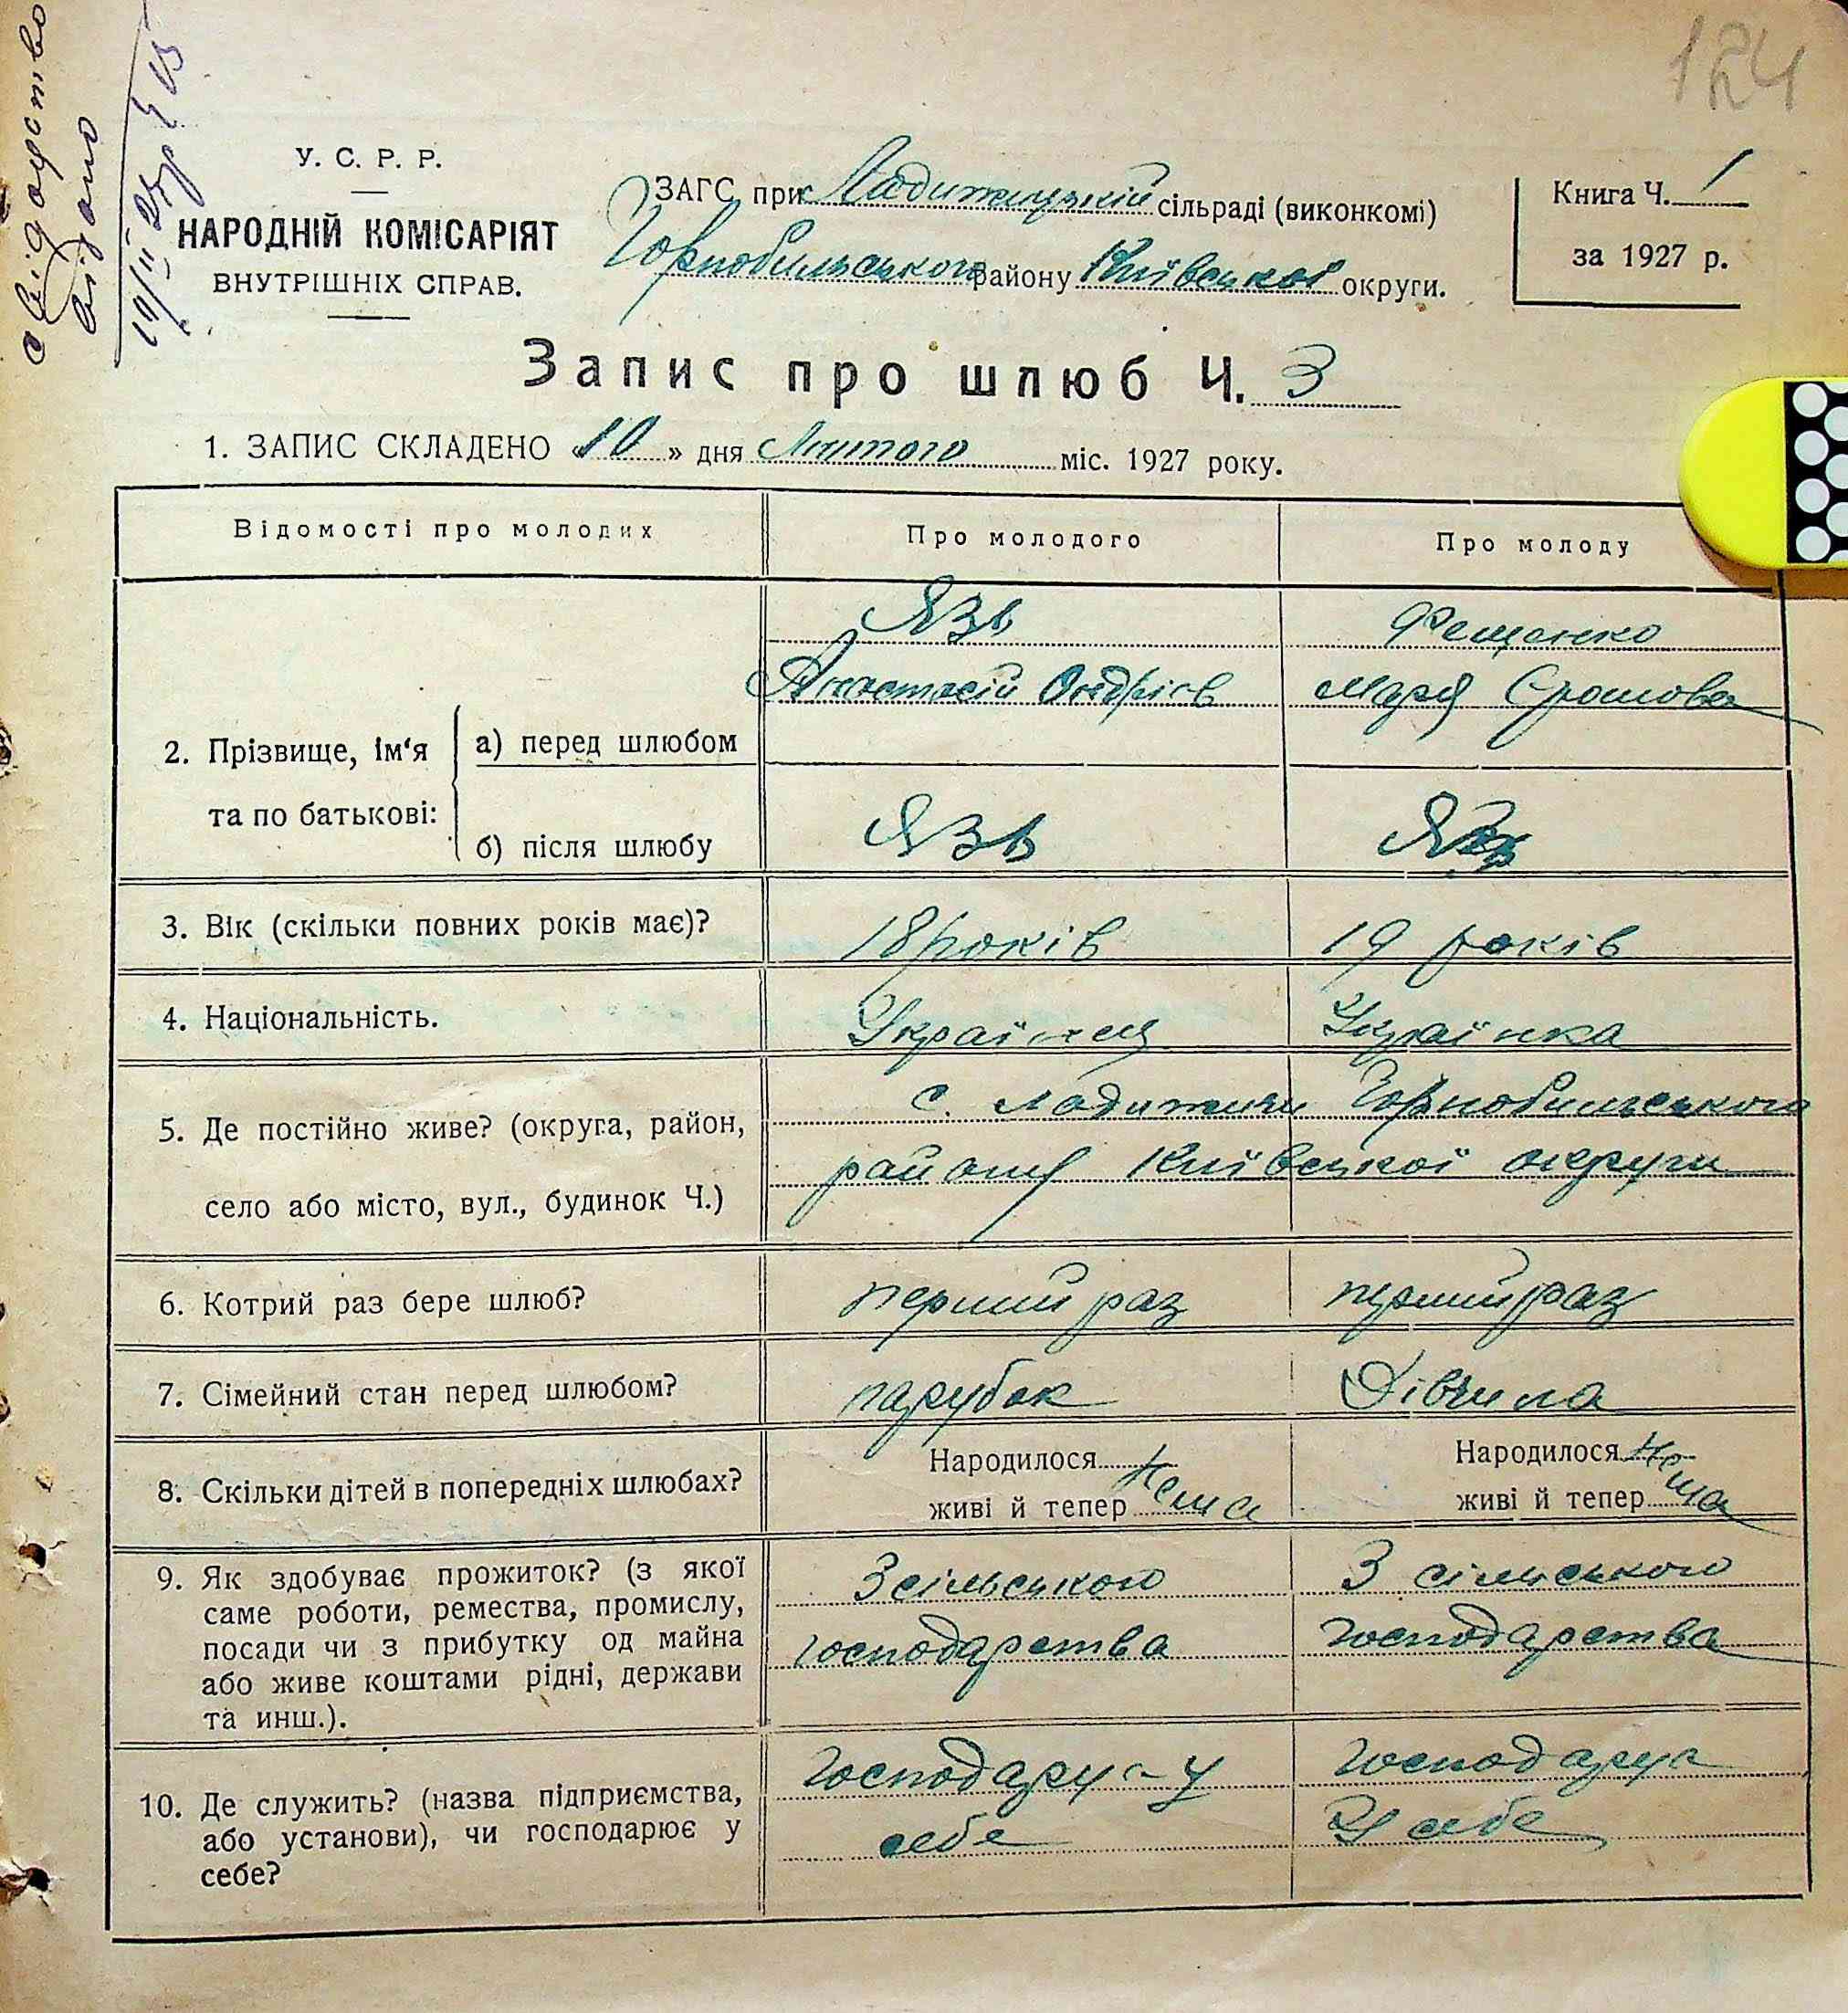 124
свідоцтво
видано
У. С. Р. Р.
НАРОДНІЙ КОМІСАРІЯТ
ВНУТРІШНІХ СПРАВ.
ЗАГС при Ладижицькій сільраді (виконкомі)
Чорнобильського району Київської округи.
Книга Ч. 1
за 1927 р.
Запис про шлюб Ч. 3
1. ЗАПИС СКЛАДЕНО «10» дня Лютого міс. 1927 року.
Відомості про молодих
Про молодого
Про молоду
2. Прізвище, ім'я та по батькові:
а) перед шлюбом
Язь
Анастасій Андріїв
Фещенко
Марія
б) після шлюбу
Язь
Язь
3. Вік (скільки повних років має)?
18 років
19 років
4. Національність.
Українець
Українка
5. Де постійно живе? (округа, район,
село або місто, вул., будинок Ч.)
с. Ладижичи Чорнобильського
району Київської округи
6. Котрий раз бере шлюб?
перший раз
перший раз
7. Сімейний стан перед шлюбом?
парубок
Дівчина
8. Скільки дітей в попередніх шлюбах?
Народилося
живі й тепер нема
Народилося
живі й тепер нема
9. Як здобуває прожиток? (з якої
саме роботи, ремества, промислу,
посади чи з прибутку од майна
або живе коштами рідні, держави
та инш.).
З сільського
господарства
З сільського
господарства
10. Де служить? (назва підприємства,
або установи), чи господарює у
себе?
Господарує у
себе
Господарує
У себе